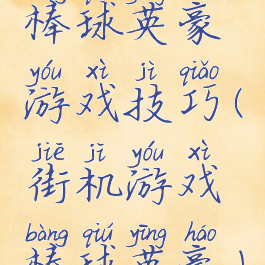 棒球英豪
yóu xì jì qiǎo
游戏技巧(
jiē jī yóu xì
街机游戏
bàng qiú yīng háo
棒球英豪)